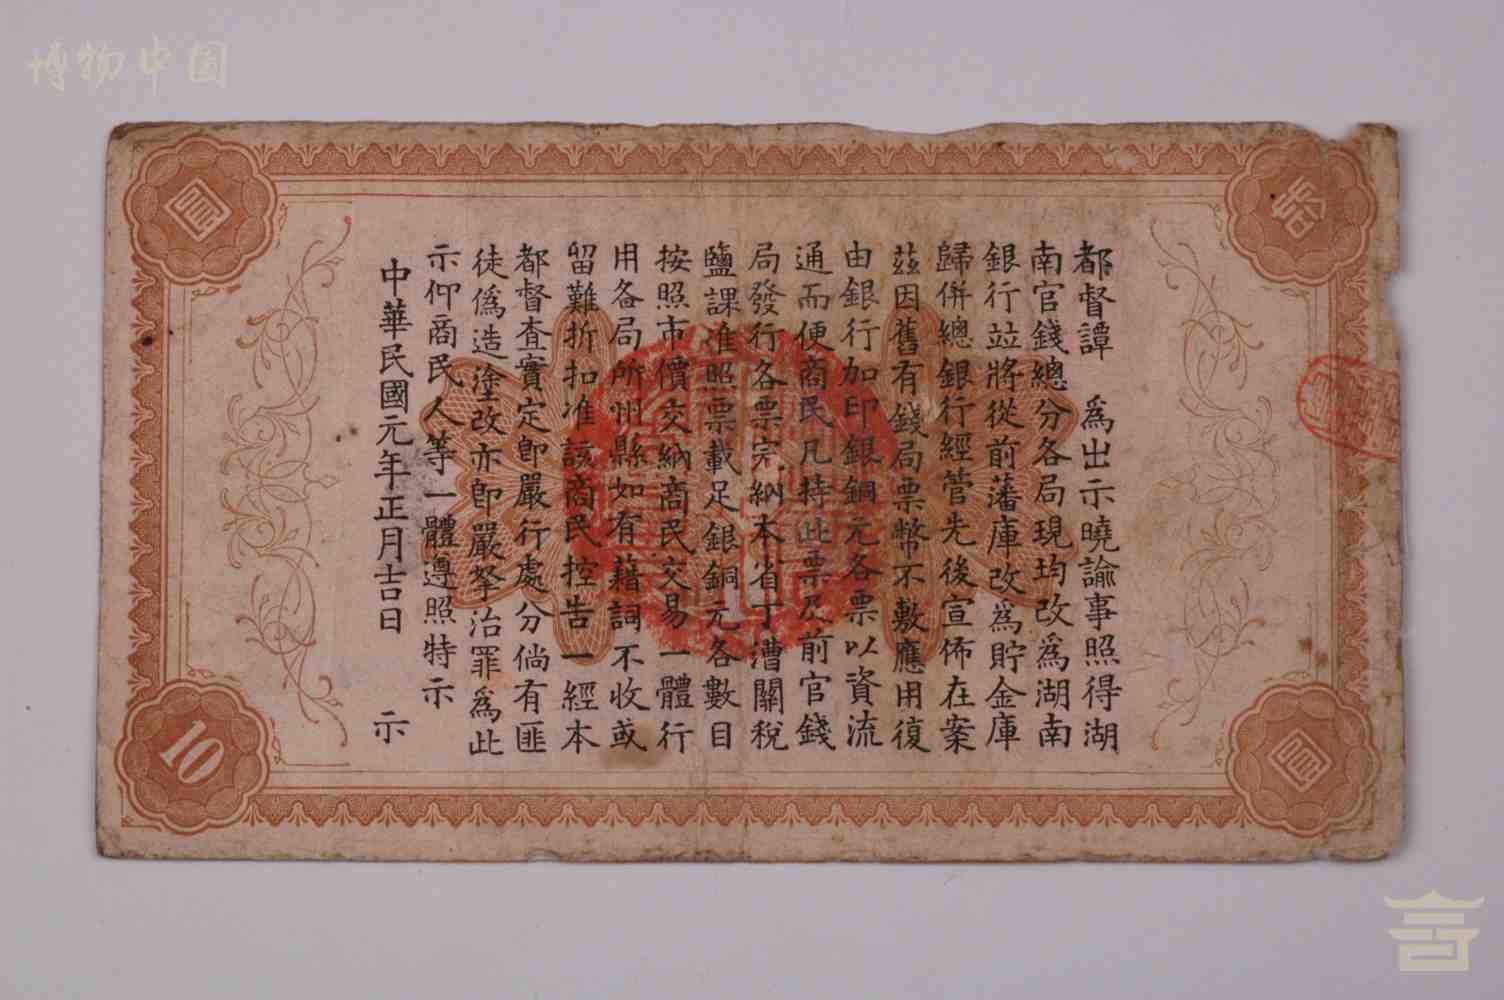 博物中国
都督譚　為出示曉諭事照得湖
南官錢總分各局現均改為湖南
銀行竝將從前藩庫改為貯金庫
歸併總銀行經管先後宣佈在案
茲因舊有錢局票幣不敷應用復
由銀行加印銀銅元各票以資流
通而便商民凡持此票及前官錢
局發行各票完納本省丁漕關稅
鹽課准照票載足銀銅元各數目
按照市價交納商民交易一體行
用各局所州縣如有藉詞不收或
留難折扣准該商民控告一經本
都督查實定即嚴行處分倘有匪
徒偽造塗改亦即嚴拏治罪為此
示仰商民人等一體遵照特示
中華民國元年正月吉日　示
拾
圓
10
圓